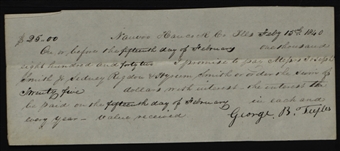 $25.00 Nauvoo Hancock Co Ills Feby 15th 1840
On or before the fifteenth day of February one thousand
eight hundred and forty two I promise to pay Joseph
Smith Jr, Sidney Rigdon & Hyrum Smith or order the sum of
Twenty five dollars, with interest, the interest to
be paid on the fifteenth day of February in each and
every year – value received
George B.